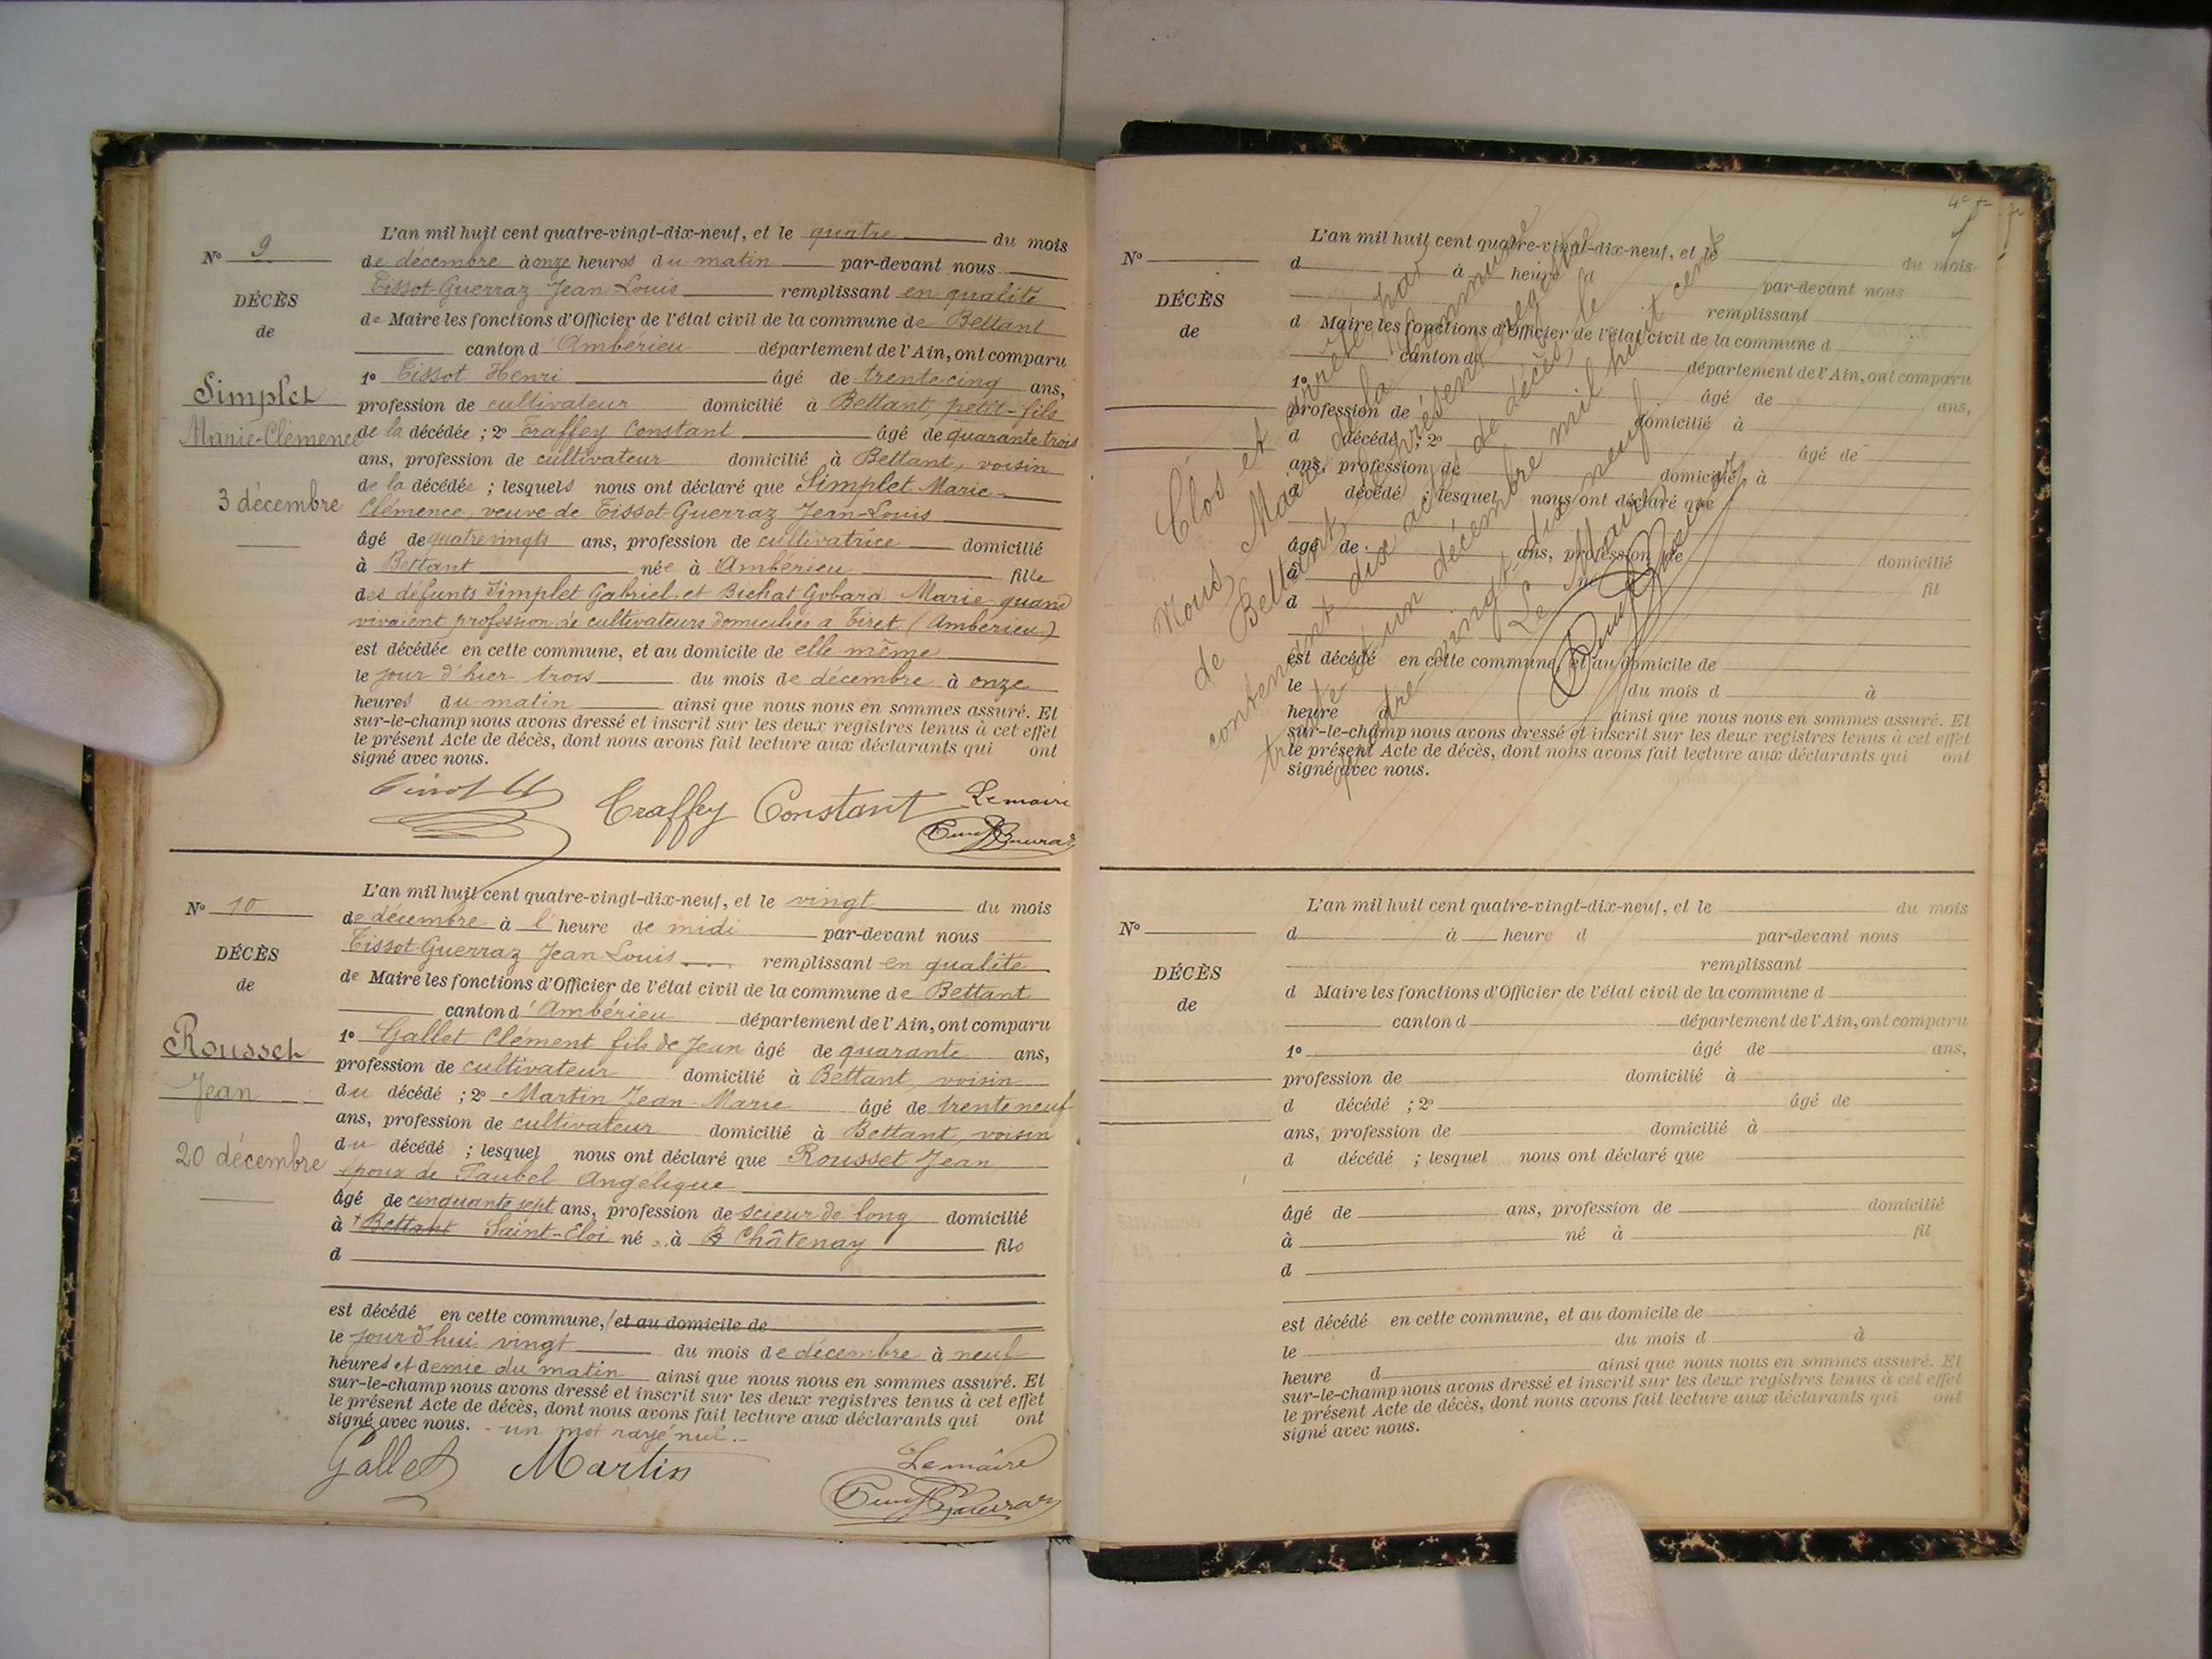 L'an mil huit cent quatre-vingt-dix-neuf, et le quatre du mois
N° 9
de décembre à onze heures du matin par-devant nous
Tissot-Guerraz Jean Louis remplissant en qualité
DÉCÈS
de Maire les fonctions d'Officier de l'état civil de la commune de Bettant
de
canton d'Ambérieu département de l'Ain, ont comparu
1° Tissot Henri âgé de trente-cinq ans,
Simplet
profession de cultivateur domicilié à Bettant, petit-fils
Marie-Clémence
de la décédée ; 2° Traffey Constant âgé de quarante trois
ans, profession de cultivateur domicilié à Bettant, voisin
de la décédée ; lesquels nous ont déclaré que Simplet Marie
3 décembre
Clémence, veuve de Tissot-Guerraz Jean-Louis
âgé de quatre vingts ans, profession de cultivatrice domicilié
à Bettant née à Ambérieu fille
des défunts Simplet Gabriel et Bichat Gobard Marie quand
vivaient profession de cultivateurs domiciliés à Tiret (Ambérieu)
est décédée en cette commune, et au domicile de elle même
le jour d'hier trois du mois de décembre à onze
heures du matin ainsi que nous nous en sommes assuré. Et
sur-le-champ nous avons dressé et inscrit sur les deux registres tenus à cet effet
le présent Acte de décès, dont nous avons fait lecture aux déclarants qui ont
signé avec nous.
Traffey Constant Lemaire
L'an mil huit cent quatre-vingt-dix-neuf, et le vingt du mois
N° 10
de décembre à l'heure de midi par-devant nous
Tissot-Guerraz Jean Louis remplissant en qualité
DÉCÈS
de Maire les fonctions d'Officier de l'état civil de la commune de Bettant
de
canton d'Ambérieu département de l'Ain, ont comparu
1° Gallet Clément fils de Jean âgé de quarante ans,
Rousset
profession de cultivateur domicilié à Bettant, voisin
Jean
du décédé ; 2° Martin Jean-Marie âgé de trente neuf
ans, profession de cultivateur domicilié à Bettant, voisin
du décédé ; lesquel nous ont déclaré que Rousset Jean
20 décembre
époux de Taubel Angélique
âgé de cinquante sept ans, profession de scieur de long domicilié
à Bettant Saint-Eloi né à Châtenay fils
d
est décédé en cette commune, et au domicile de
le jourd'hui vingt du mois de décembre à neuf
heures et demie du matin ainsi que nous nous en sommes assuré. Et
sur-le-champ nous avons dressé et inscrit sur les deux registres tenus à cet effet
le présent Acte de décès, dont nous avons fait lecture aux déclarants qui ont
signé avec nous. - un mot rayé nul. -
Gallet Martin Lemaire
L'an mil huit cent quatre-vingt-dix-neuf, et le du mois
N°
d à heure d par-devant nous
remplissant
DÉCÈS
d Maire les fonctions d'Officier de l'état civil de la commune d
de
canton d département de l'Ain, ont comparu
1° âgé de ans,
profession de domicilié à
d décédé ; 2° âgé de
ans, profession de domicilié à
d décédé ; lesquel nous ont déclaré que
âgé de ans, profession de domicilié
à né à fil
d
est décédé en cette commune, et au domicile de
le du mois d à
heure d ainsi que nous nous en sommes assuré. Et
sur-le-champ nous avons dressé et inscrit sur les deux registres tenus à cet effet
le présent Acte de décès, dont nous avons fait lecture aux déclarants qui ont
signé avec nous.
Clos et arrêté par
Nous Maire de la commune
de Bettant le présent registre
contenant dix actes de décès, le
trente et un décembre mil huit cent
quatre-vingt-dix-neuf.
Le Maire
L'an mil huit cent quatre-vingt-dix-neuf, et le du mois
N°
d à heure d par-devant nous
remplissant
DÉCÈS
d Maire les fonctions d'Officier de l'état civil de la commune d
de
canton d département de l'Ain, ont comparu
1° âgé de ans,
profession de domicilié à
d décédé ; 2° âgé de
ans, profession de domicilié à
d décédé ; lesquel nous ont déclaré que
âgé de ans, profession de domicilié
à né à fil
d
est décédé en cette commune, et au domicile de
le du mois d à
heure d ainsi que nous nous en sommes assuré. Et
sur-le-champ nous avons dressé et inscrit sur les deux registres tenus à cet effet
le présent Acte de décès, dont nous avons fait lecture aux déclarants qui ont
signé avec nous.